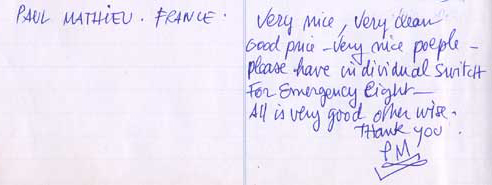 PAUL MATHIEU. FRANCE.
Very nice, Very clean
Good price - Very nice poeple -
please have individual Switch
For Emergency Light -
All is very good other wise.
Thank you
PM